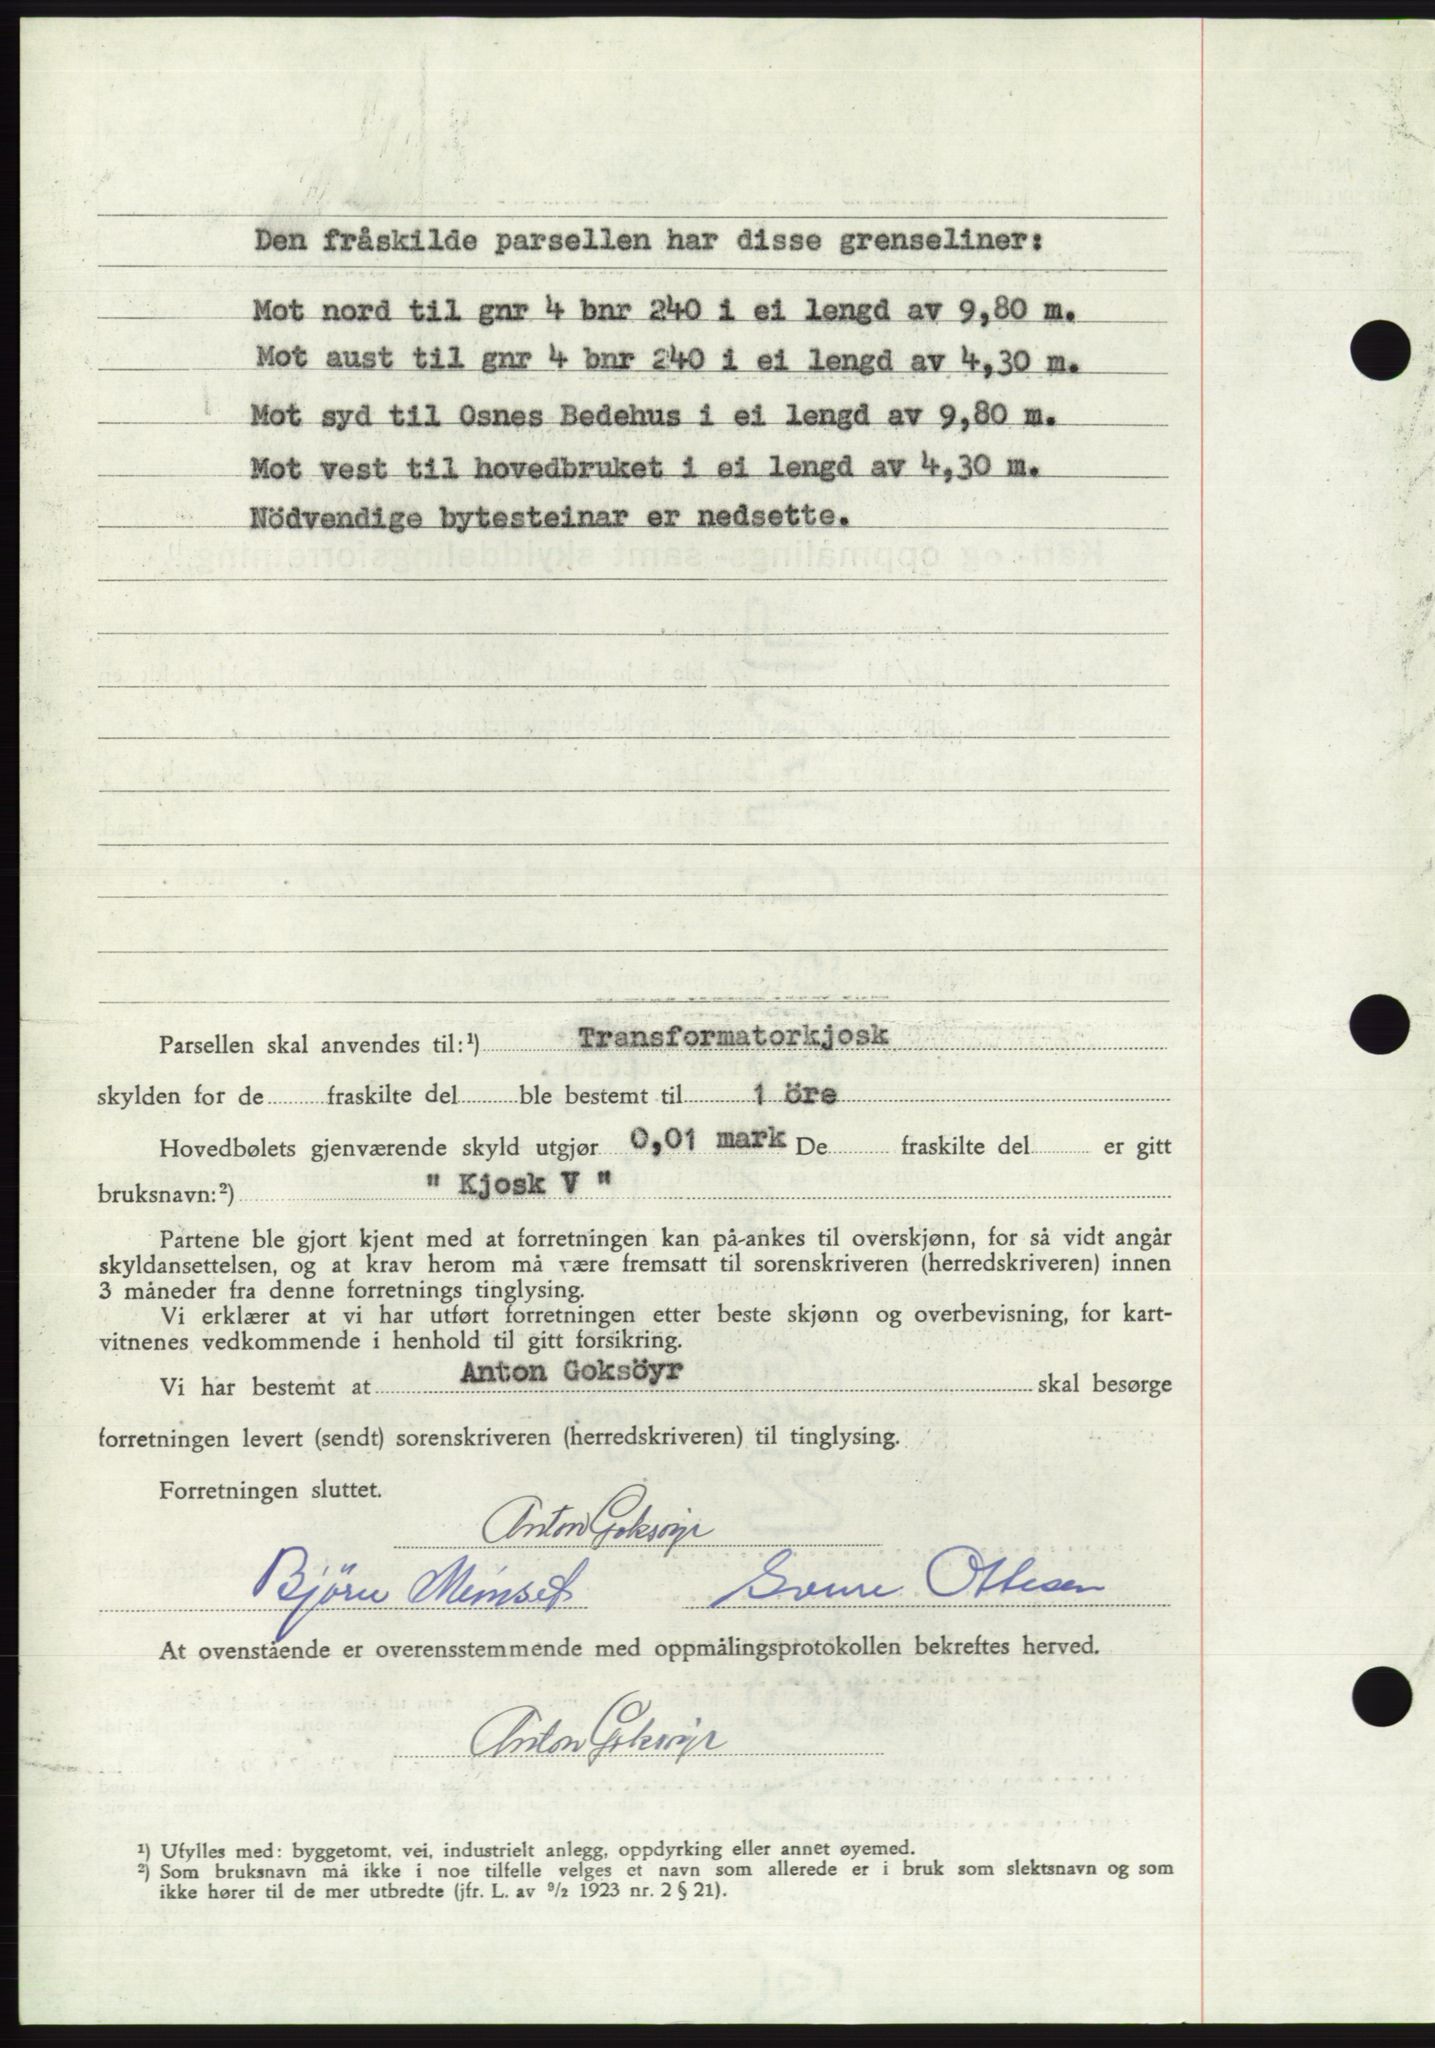 Den fråskilde parsellen har disse grenseliner:
Mot nord til gnr 4 bnr 240 i ei lengd av 9,80 m.
Mot aust til gnr 4 bnr 240 i ei lengd av 4,30 m.
Mot syd til Osnes Bedehus i ei lengd av 9,80 m.
Mot vest til hovedbruket i ei lengd av 4,30 m.
Nödvendige bytesteinar er nedsette.
Parsellen skal anvendes til:¹) Transformatorkjosk
skylden for de fraskilte del ble bestemt til 1 öre
Hovedbølets gjenværende skyld utgjør 0,01 mark De fraskilte del er gitt
bruksnavn:²) " Kjosk V "
Partene ble gjort kjent med at forretningen kan på-ankes til overskjønn, for så vidt angår
skyldansettelsen, og at krav herom må være fremsatt til sorenskriveren (herredskriveren) innen
3 måneder fra denne forretnings tinglysing.
Vi erklærer at vi har utført forretningen etter beste skjønn og overbevisning, for kart-
vitnenes vedkommende i henhold til gitt forsikring.
Vi har bestemt at Anton Goksöyr skal besørge
forretningen levert (sendt) sorenskriveren (herredskriveren) til tinglysing.
Forretningen sluttet.
Anton Goksøyr
Björn Meinset Sverre Ottesen
At ovenstående er overensstemmende med oppmålingsprotokollen bekreftes herved.
Anton Goksøyr
¹) Ufylles med: byggetomt, vei, industrielt anlegg, oppdyrking eller annet øyemed.
²) Som bruksnavn må ikke i noe tilfelle velges et navn som allerede er i bruk som slektsnavn og som
ikke hører til de mer utbredte (jfr. L. av 9/2 1923 nr. 2 § 21).